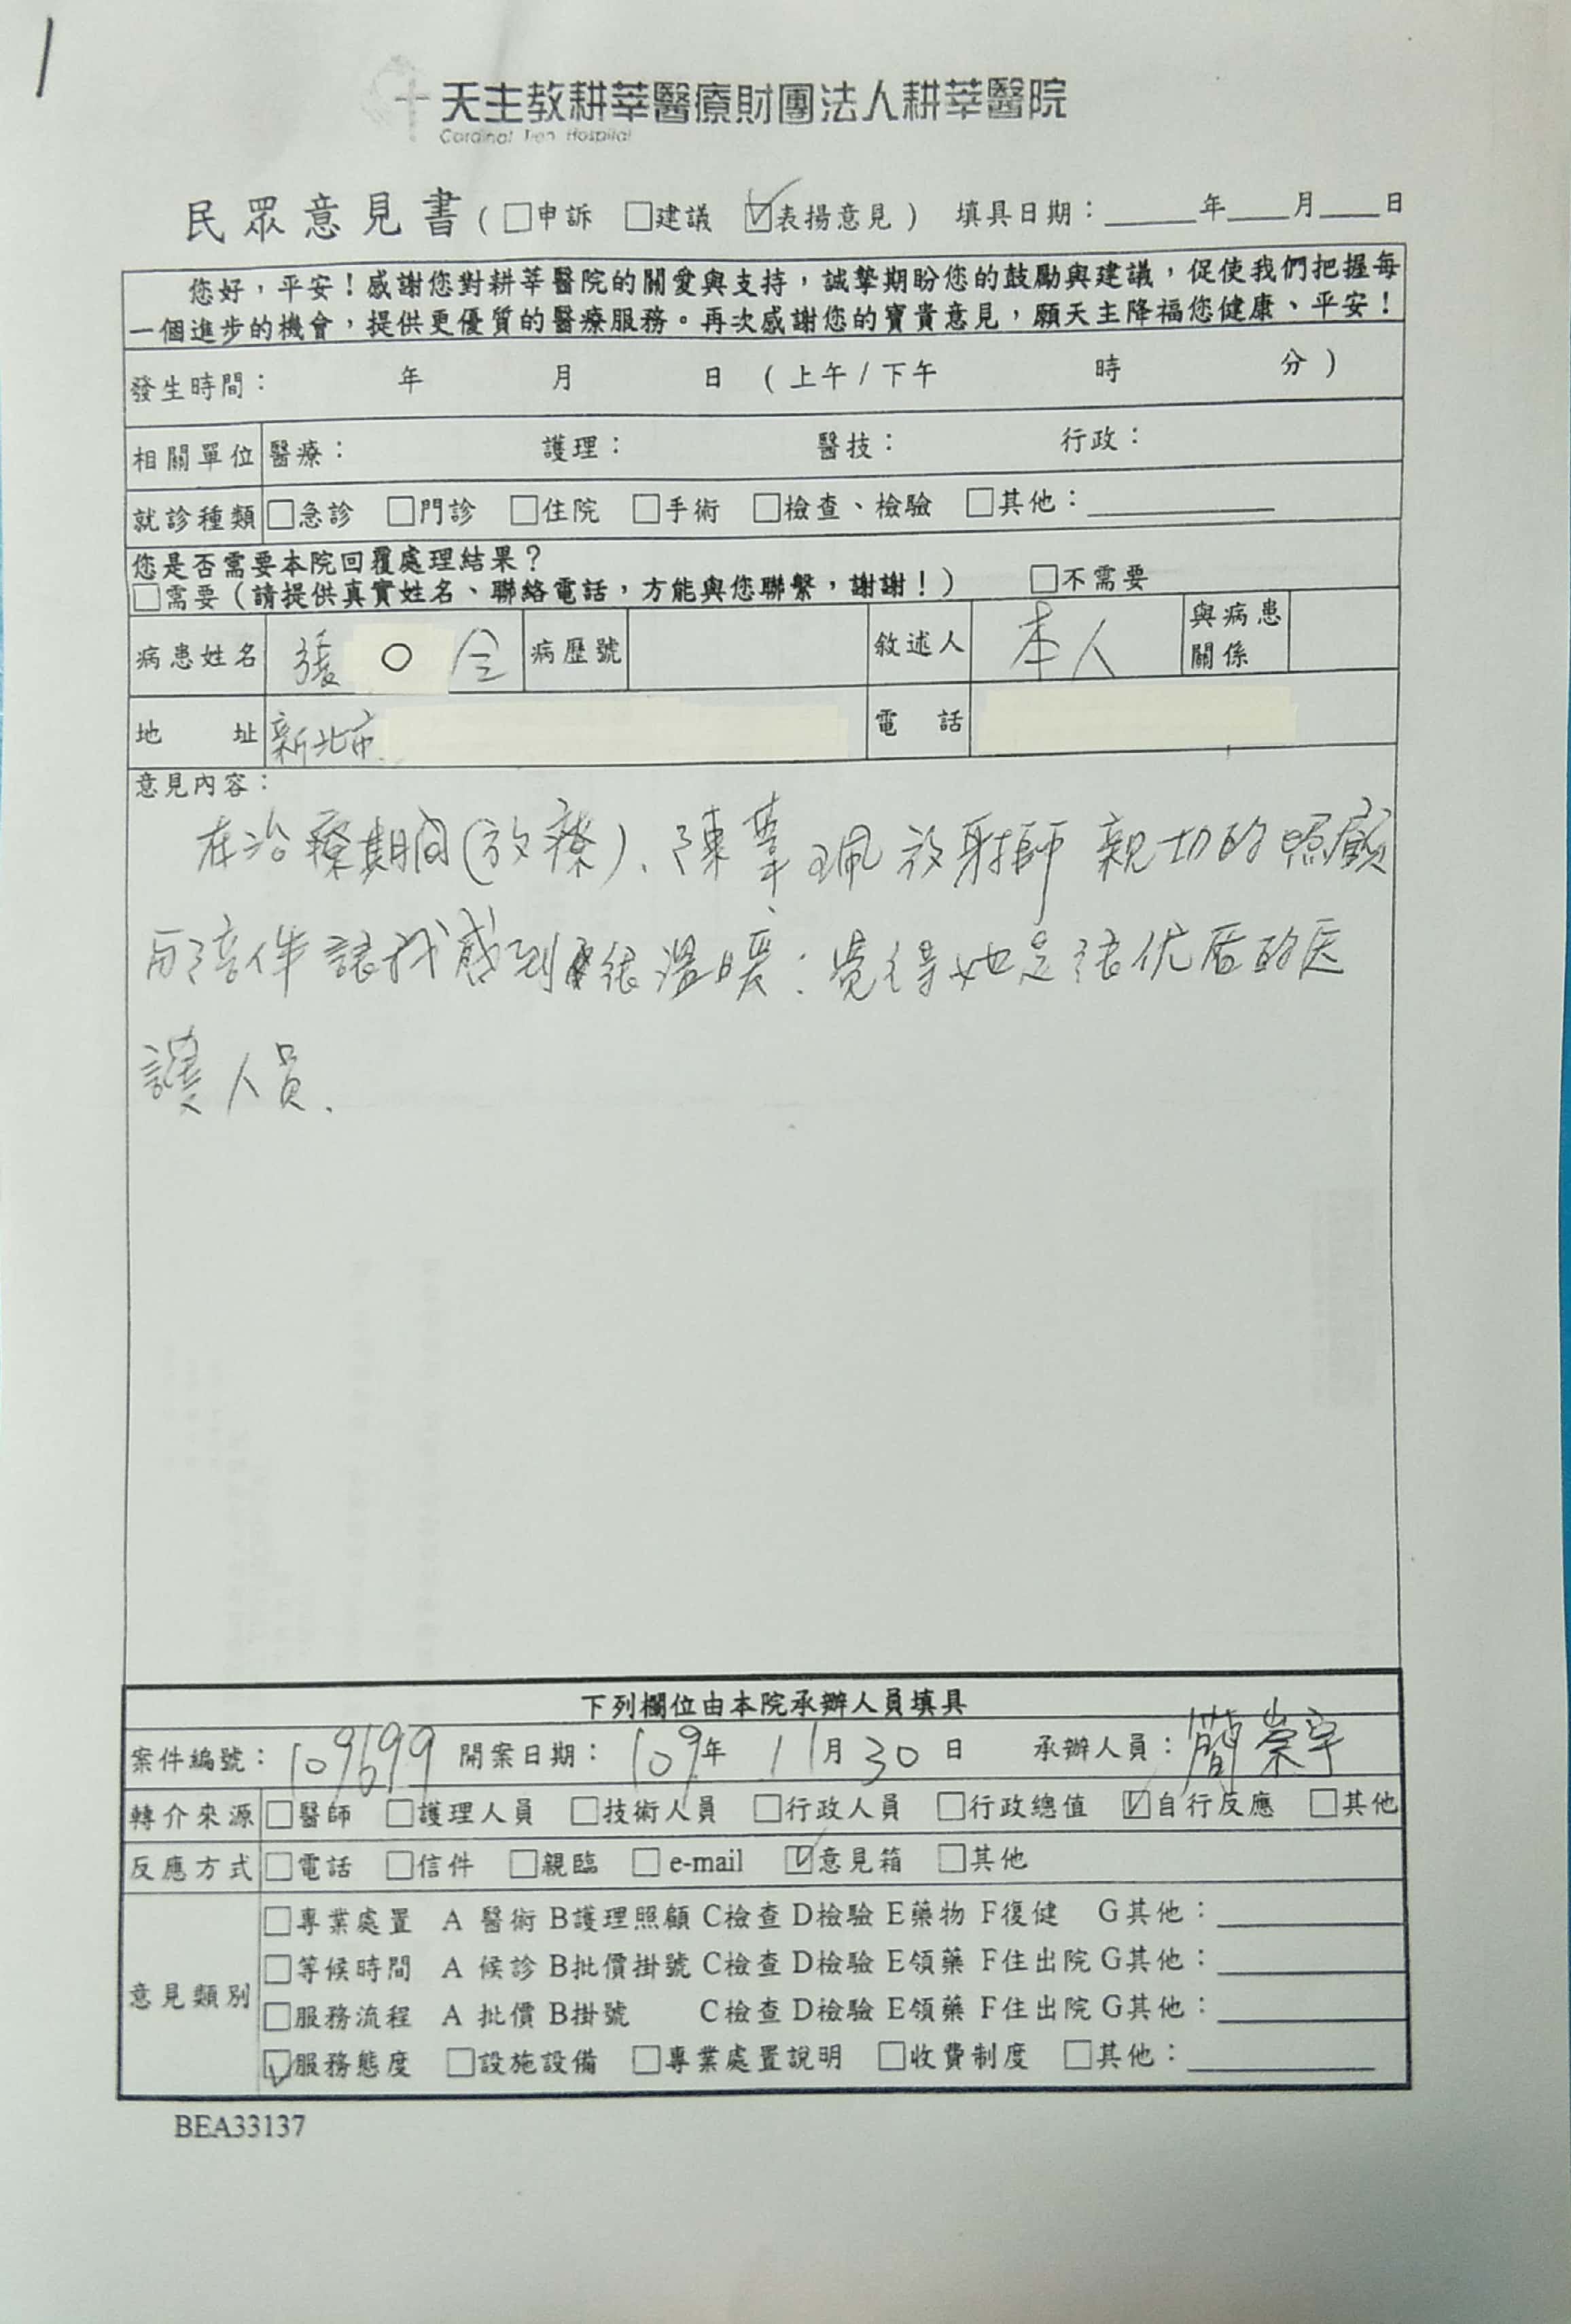 天主教耕莘醫療財團法人耕莘醫院
Cardinal Tien Hospital
民眾意見書(□申訴 □建議 ☑表揚意見) 填具日期：____年____月____日
您好，平安！感謝您對耕莘醫院的關愛與支持，誠摯期盼您的鼓勵與建議，促使我們把握每
一個進步的機會，提供更優質的醫療服務。再次感謝您的寶貴意見，願天主降福您健康、平安！
發生時間： 年 月 日 (上午/下午 時 分)
相關單位 醫療： 護理： 醫技： 行政：
就診種類 □急診 □門診 □住院 □手術 □檢查、檢驗 □其他：____
您是否需要本院回覆處理結果？
□需要(請提供真實姓名、聯絡電話，方能與您聯繫，謝謝！) □不需要
病患姓名 張○全 病歷號 敘述人 本人 與病患關係
地 址 新北市 電 話
意見內容：
在治療期间(放療)、陳葦珮放射師 親切的照顧
陪伴 讓我感到很溫暖：覺得她是很优质的医
護人員.
下列欄位由本院承辦人員填具
案件編號：109699 開案日期：109年11月30日 承辦人員：簡崇宇
轉介來源 □醫師 □護理人員 □技術人員 □行政人員 □行政總值 ☑自行反應 □其他
反應方式 □電話 □信件 □親臨 □e-mail ☑意見箱 □其他
意見類別
□專業處置 A 醫術 B護理照顧 C檢查 D檢驗 E藥物 F復健 G其他：____
□等候時間 A 候診 B批價掛號 C檢查 D檢驗 E領藥 F住出院 G其他：____
□服務流程 A 批價 B掛號 C檢查 D檢驗 E領藥 F住出院 G其他：____
☑服務態度 □設施設備 □專業處置說明 □收費制度 □其他：____
BEA33137